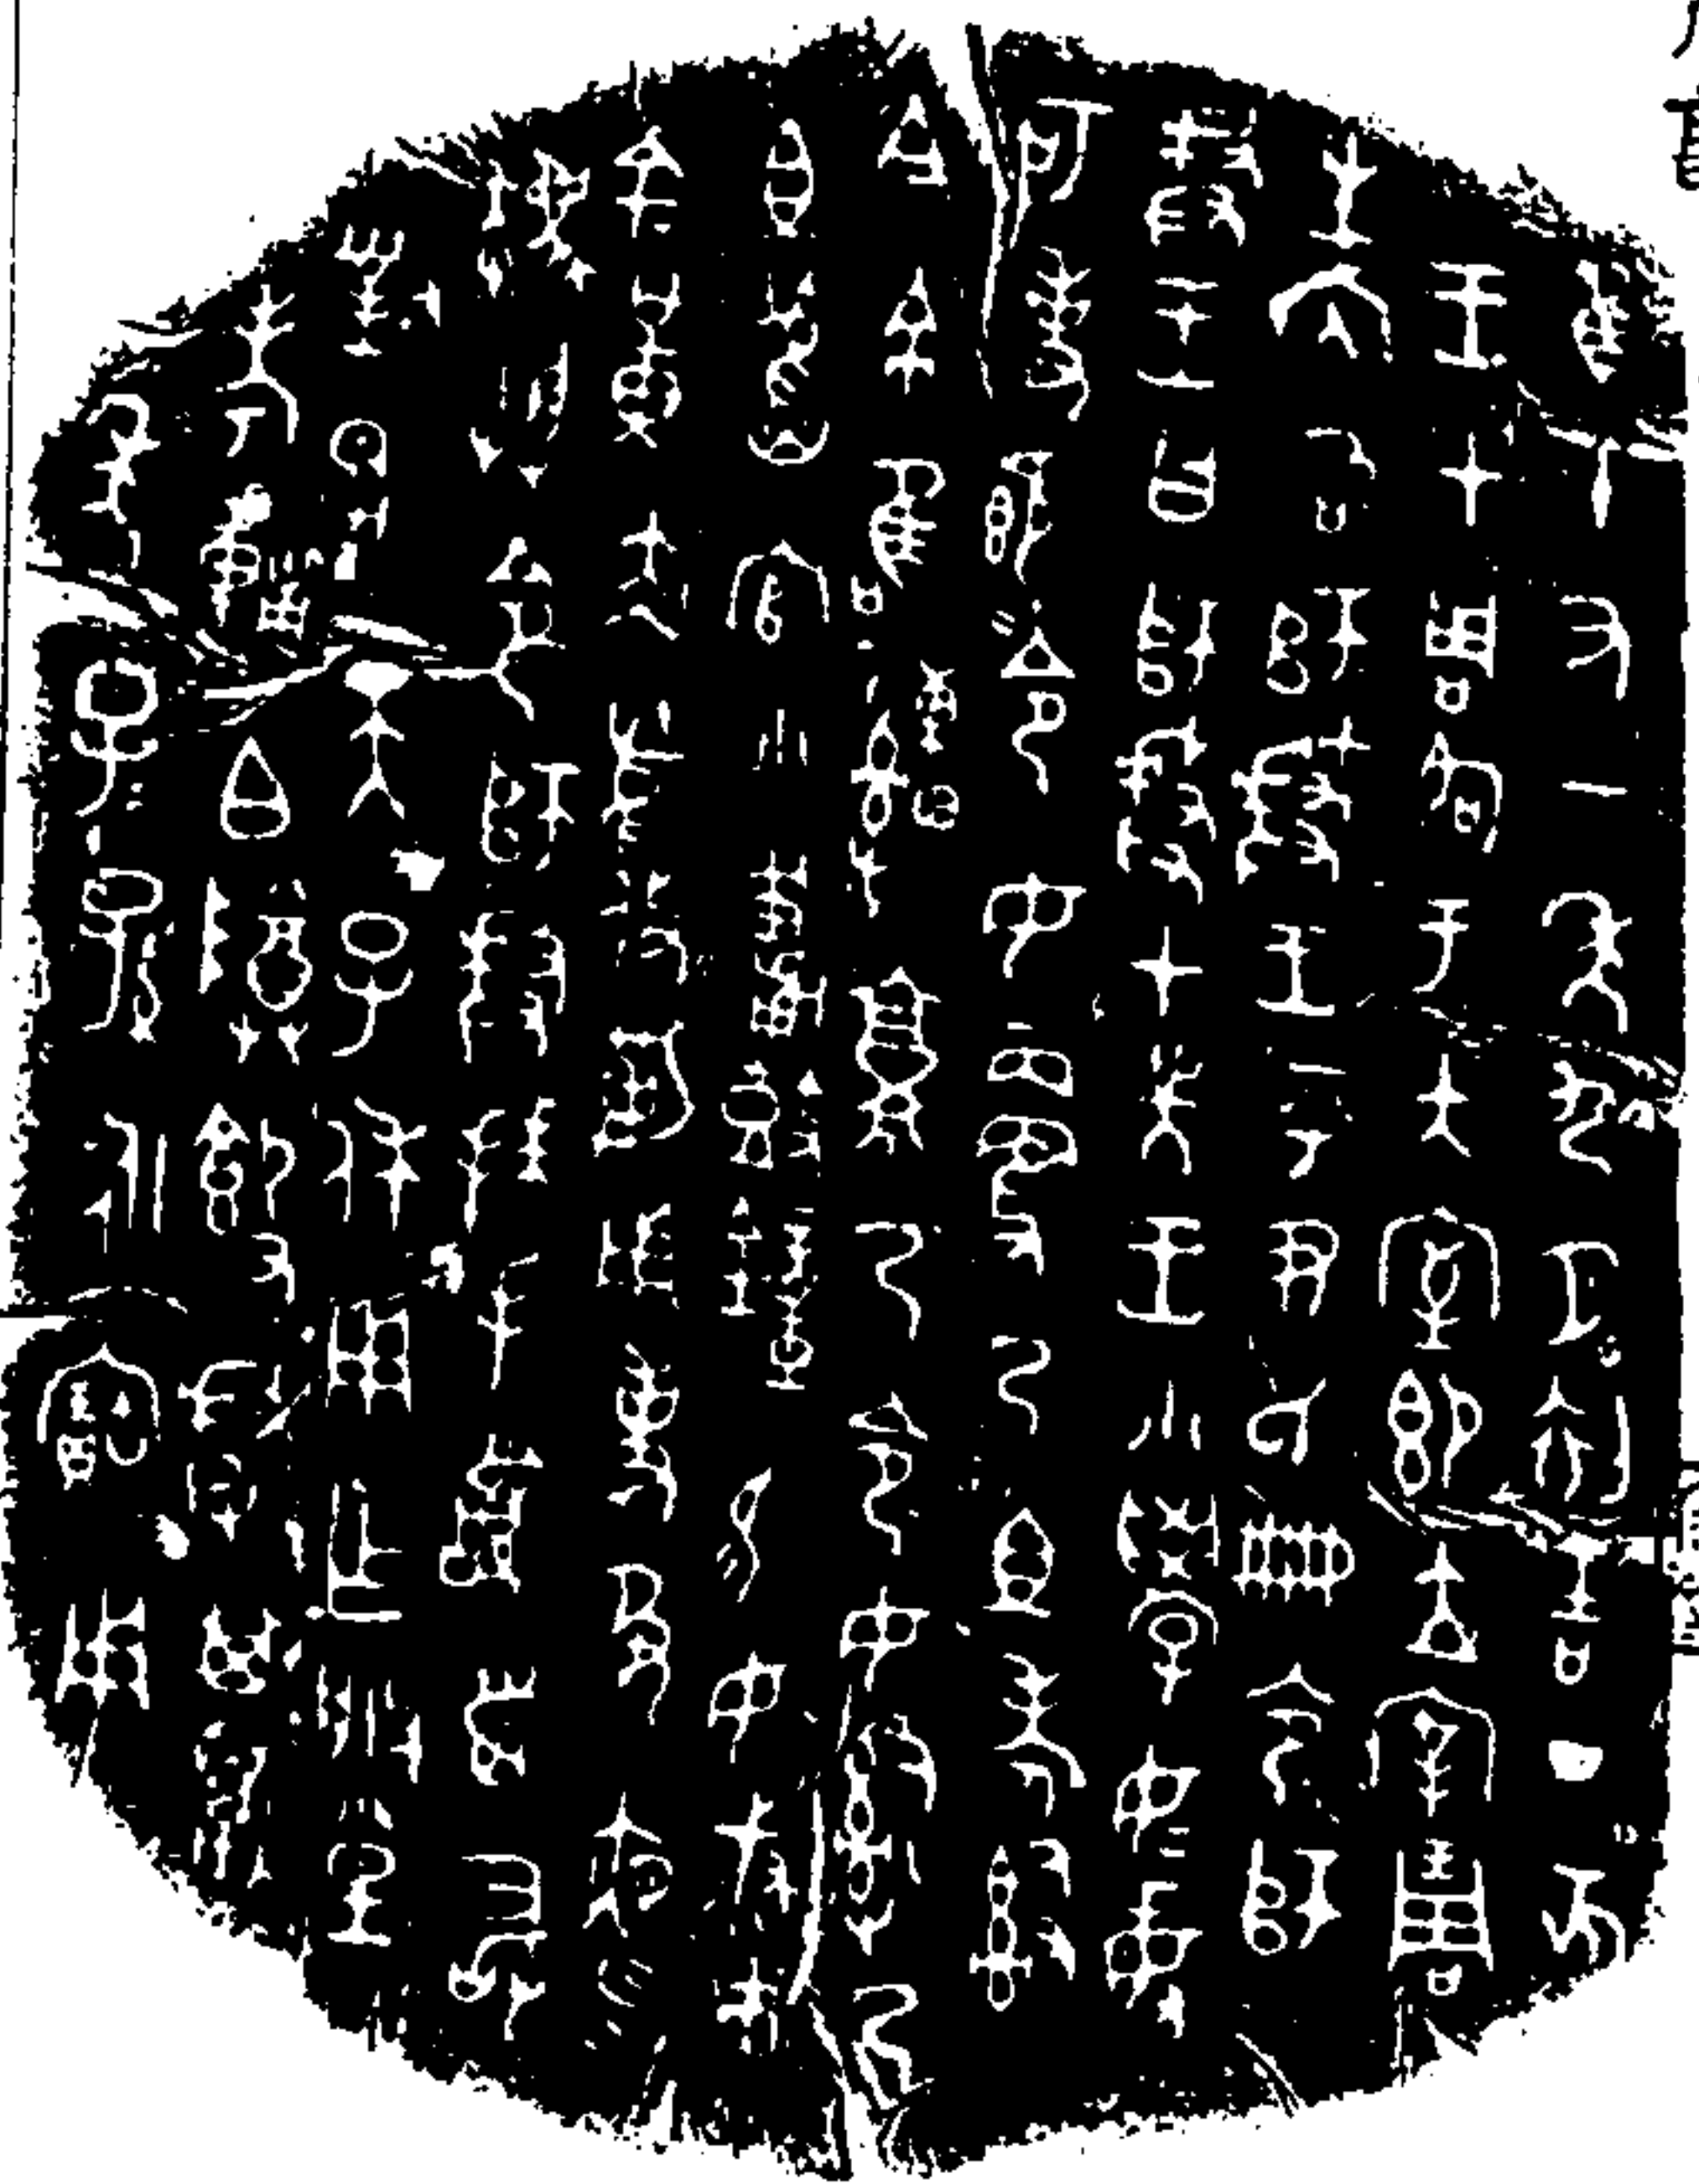 隹十又一年九月初吉丁亥
王才周各于大室即立宰琱
生內右師𠭰王乎尹氏冊令師
𠭰王曰師𠭰才先王小學女女敏
可事既令女更乃且考𤔲
今余唯申就乃令令女𤔲乃
且舊官小輔鼓鐘易女叔市
金黃赤舄攸勒用事夙夜勿
灋朕令師𠭰拜手稽首敢
對揚天子休用乍朕皇
考輔白尊簋𠭰其萬
年子子孫孫永寶用